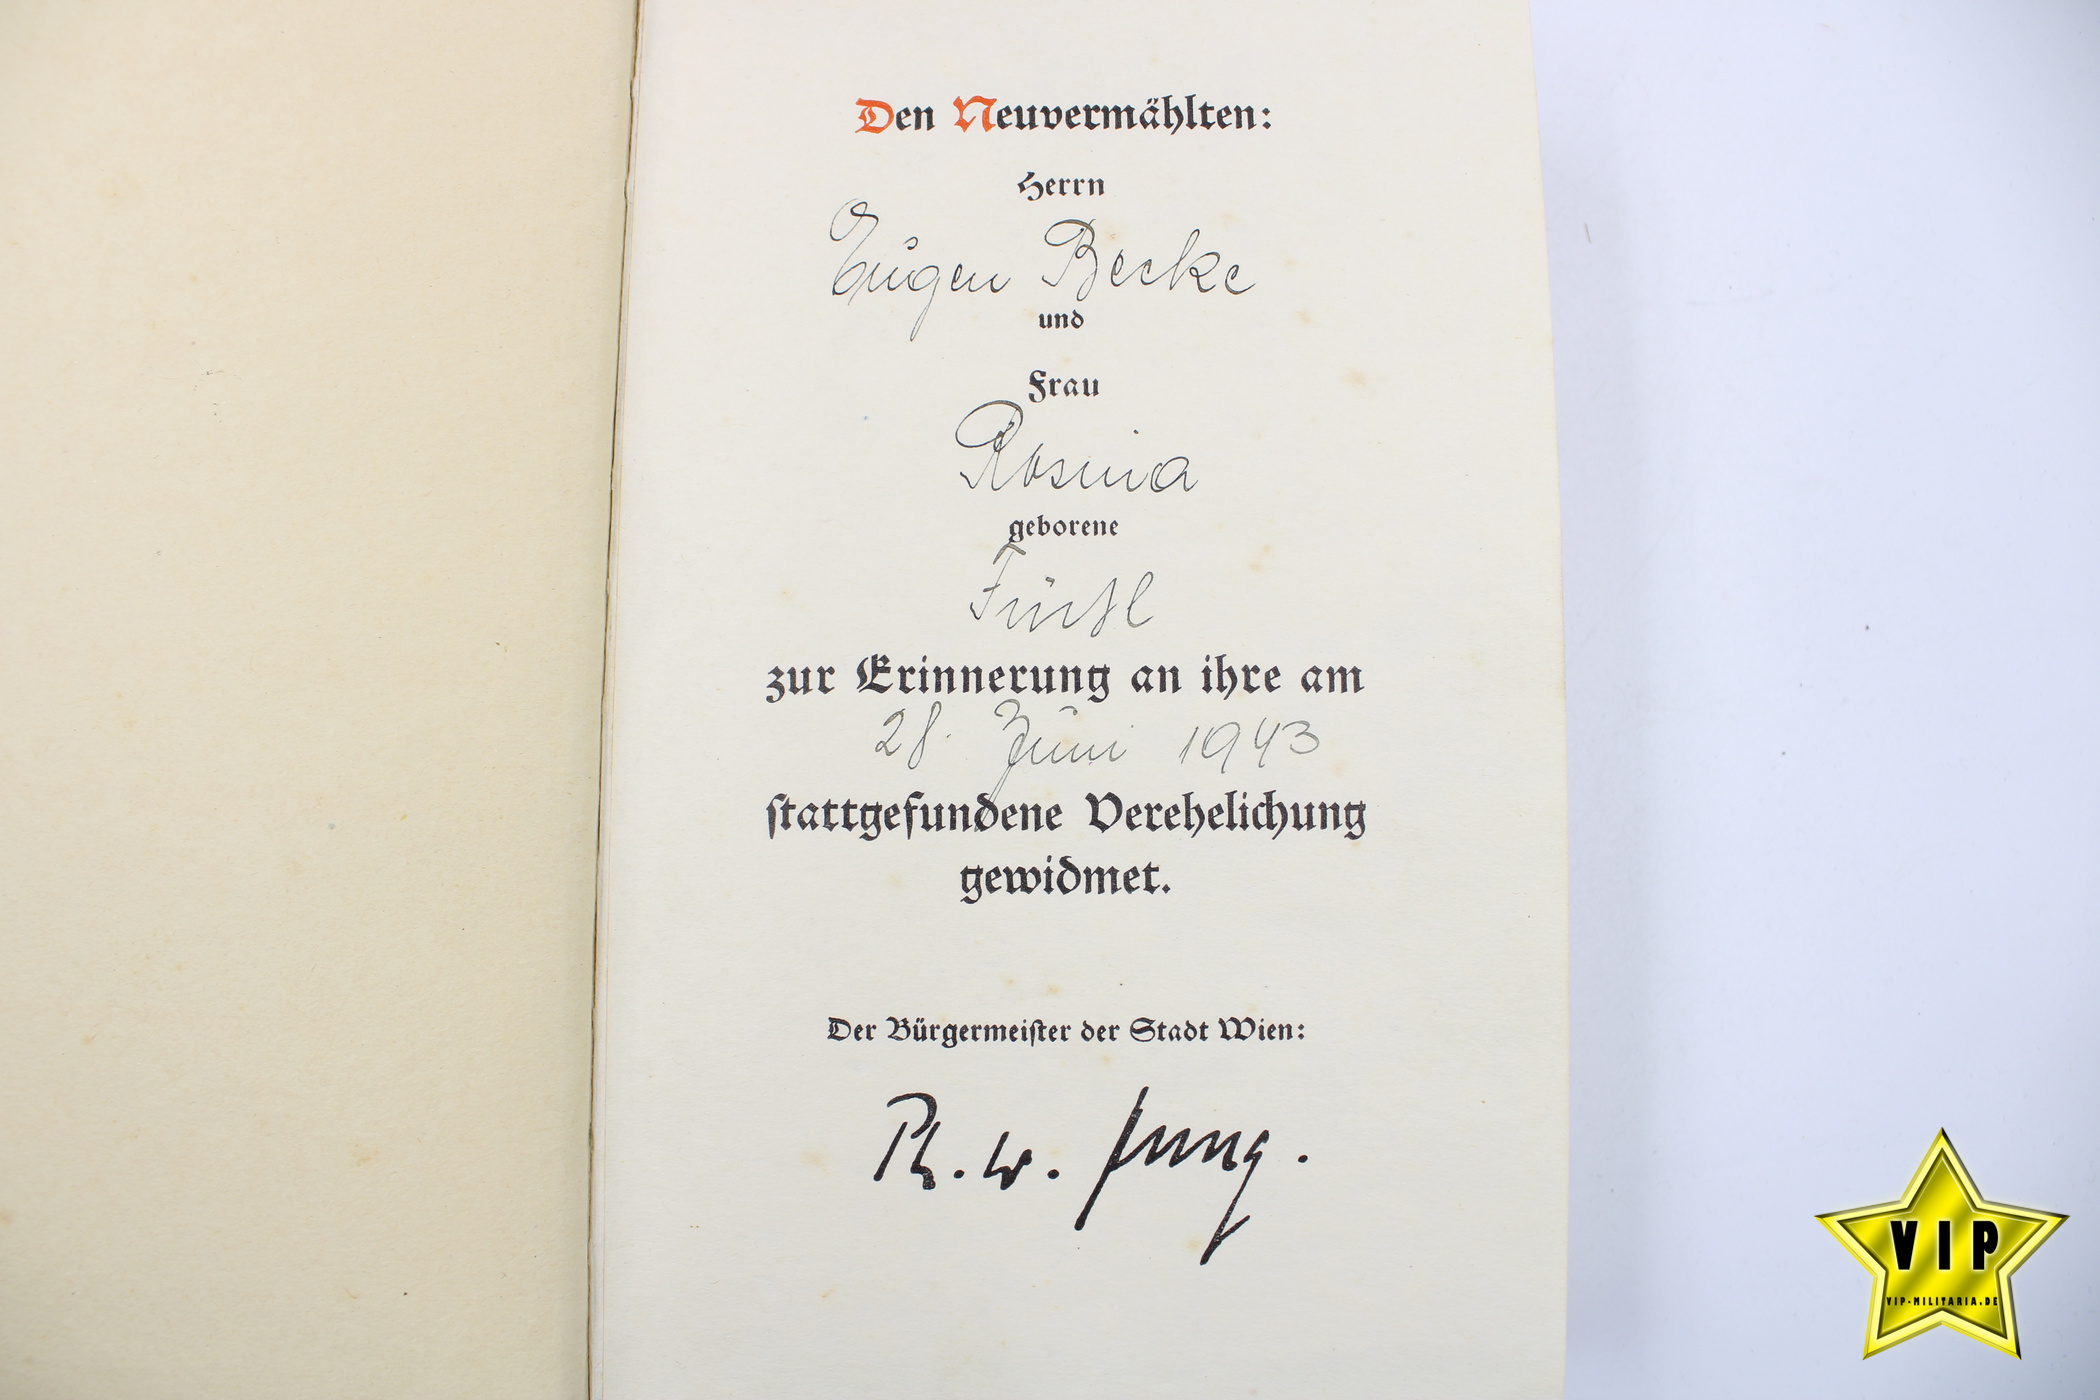 Den Neuvermählten:
Herrn
Eugen Becke
und
Frau
Rosina
geborene
zur Erinnerung an ihre am
28. Juni 1943
ſtattgefundene Verehelichung
gewidmet.
Der Bürgermeiſter der Stadt Wien:
Ph. W. Jung.
VIP
VIP-MILITARIA.DE